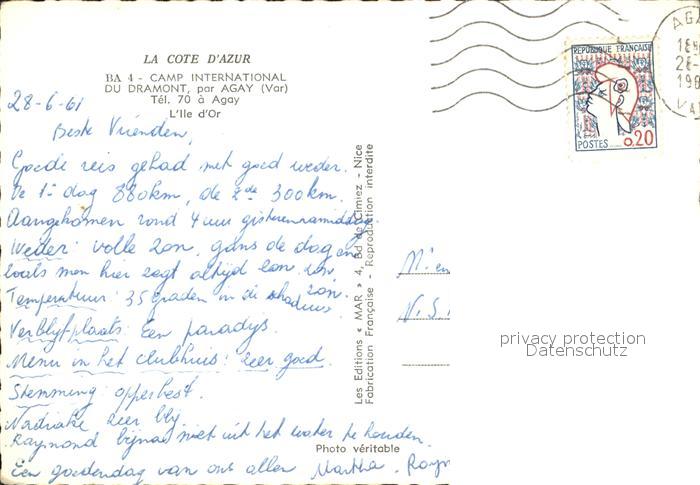 LA COTE D'AZUR
BA 4 - CAMP INTERNATIONAL
DU DRAMONT, par AGAY (Var)
Tél. 70 à Agay
L'Ile d'Or
28-6-61
Beste Vrienden,
Goede reis gehad met goed weder.
De 1e dag 880km, de 2de 300km.
Aangekomen rond 4 uur gisterennamiddag
Weder: volle zon, gans de dag en
zoals men hier zegt altijd zon, zon,
zon.
Temperatuur: 35 graden in de schaduw
Verblijfplaats: Een paradijs.
Menu in het clubhuis: zeer goed.
Stemming: opperbest.
zeer blij
Raymond bijna niet uit het water te houden.
Een goedendag van ons allen Martha. Raym
Les Editions « MAR » 4, Bd de Cimiez - Nice
Fabrication Française - Reproduction interdite
Photo véritable
REPUBLIQUE FRANÇAISE
POSTES 0,20
AGA
18
28-
196
VA
M'en
V.S.
privacy protection
Datenschutz